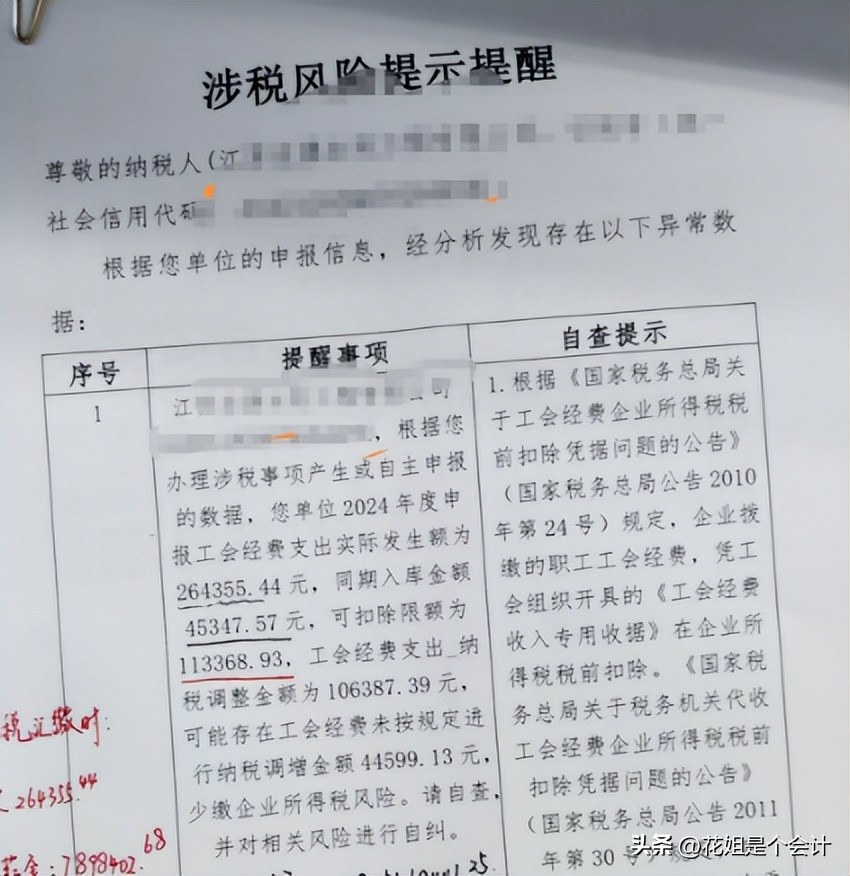 涉税风险提示提醒
尊敬的纳税人(江
社会信用代码
根据您单位的申报信息，经分析发现存在以下异常数
据：
序号
提醒事项
自查提示
1
江
公司
，根据您
办理涉税事项产生或自主申报
的数据，您单位2024年度申
报工会经费支出实际发生额为
264355.44元，同期入库金额
45347.57元，可扣除限额为
113368.93，工会经费支出_纳
税调整金额为106387.39元，
可能存在工会经费未按规定进
行纳税调增金额44599.13元，
少缴企业所得税风险。请自查，
并对相关风险进行自纠。
1.根据《国家税务总局关
于工会经费企业所得税税
前扣除凭据问题的公告》
（国家税务总局公告2010
年第24号）规定，企业拨
缴的职工工会经费，凭工
会组织开具的《工会经费
收入专用收据》在企业所
得税税前扣除。《国家税
务总局关于税务机关代收
工会经费企业所得税税前
扣除凭据问题的公告》
（国家税务总局公告2011
年第30号）规
税汇缴时：
264355.44
金：7898402.68
25.
头条 @花姐是个会计